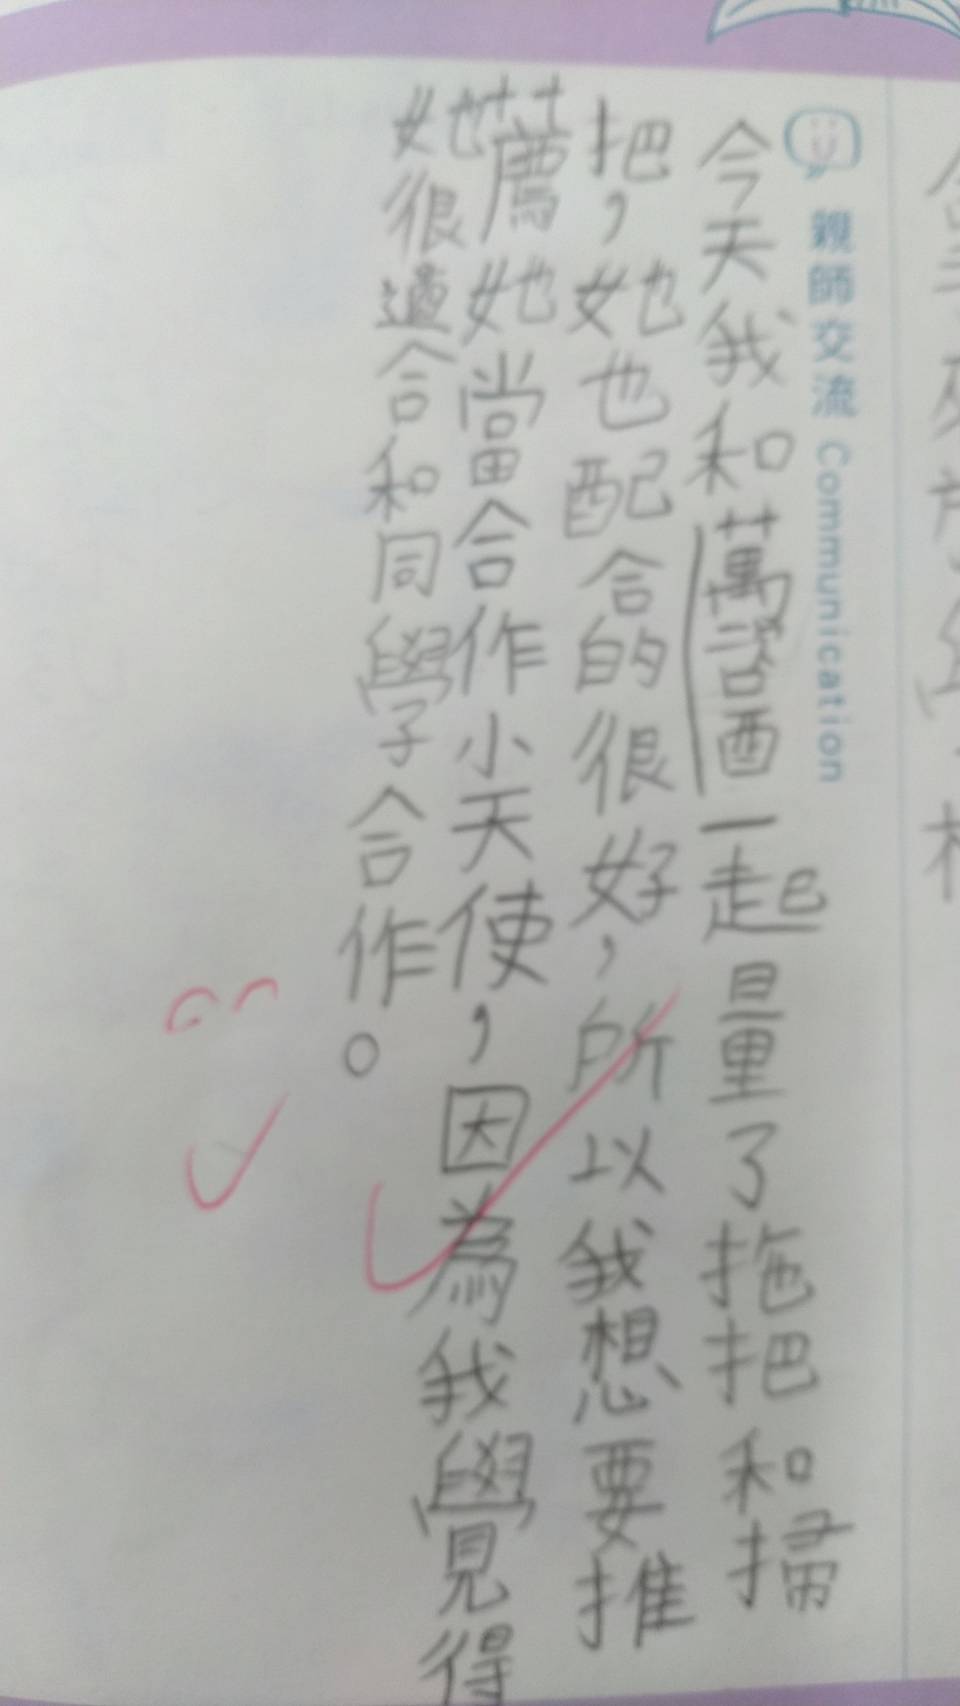 親師交流 Communication
今天我和萬語西一起量了拖把和掃
把，她也配合的很好，所以我想要推
薦她當合作小天使，因為我覺得
她很適合和同學合作。